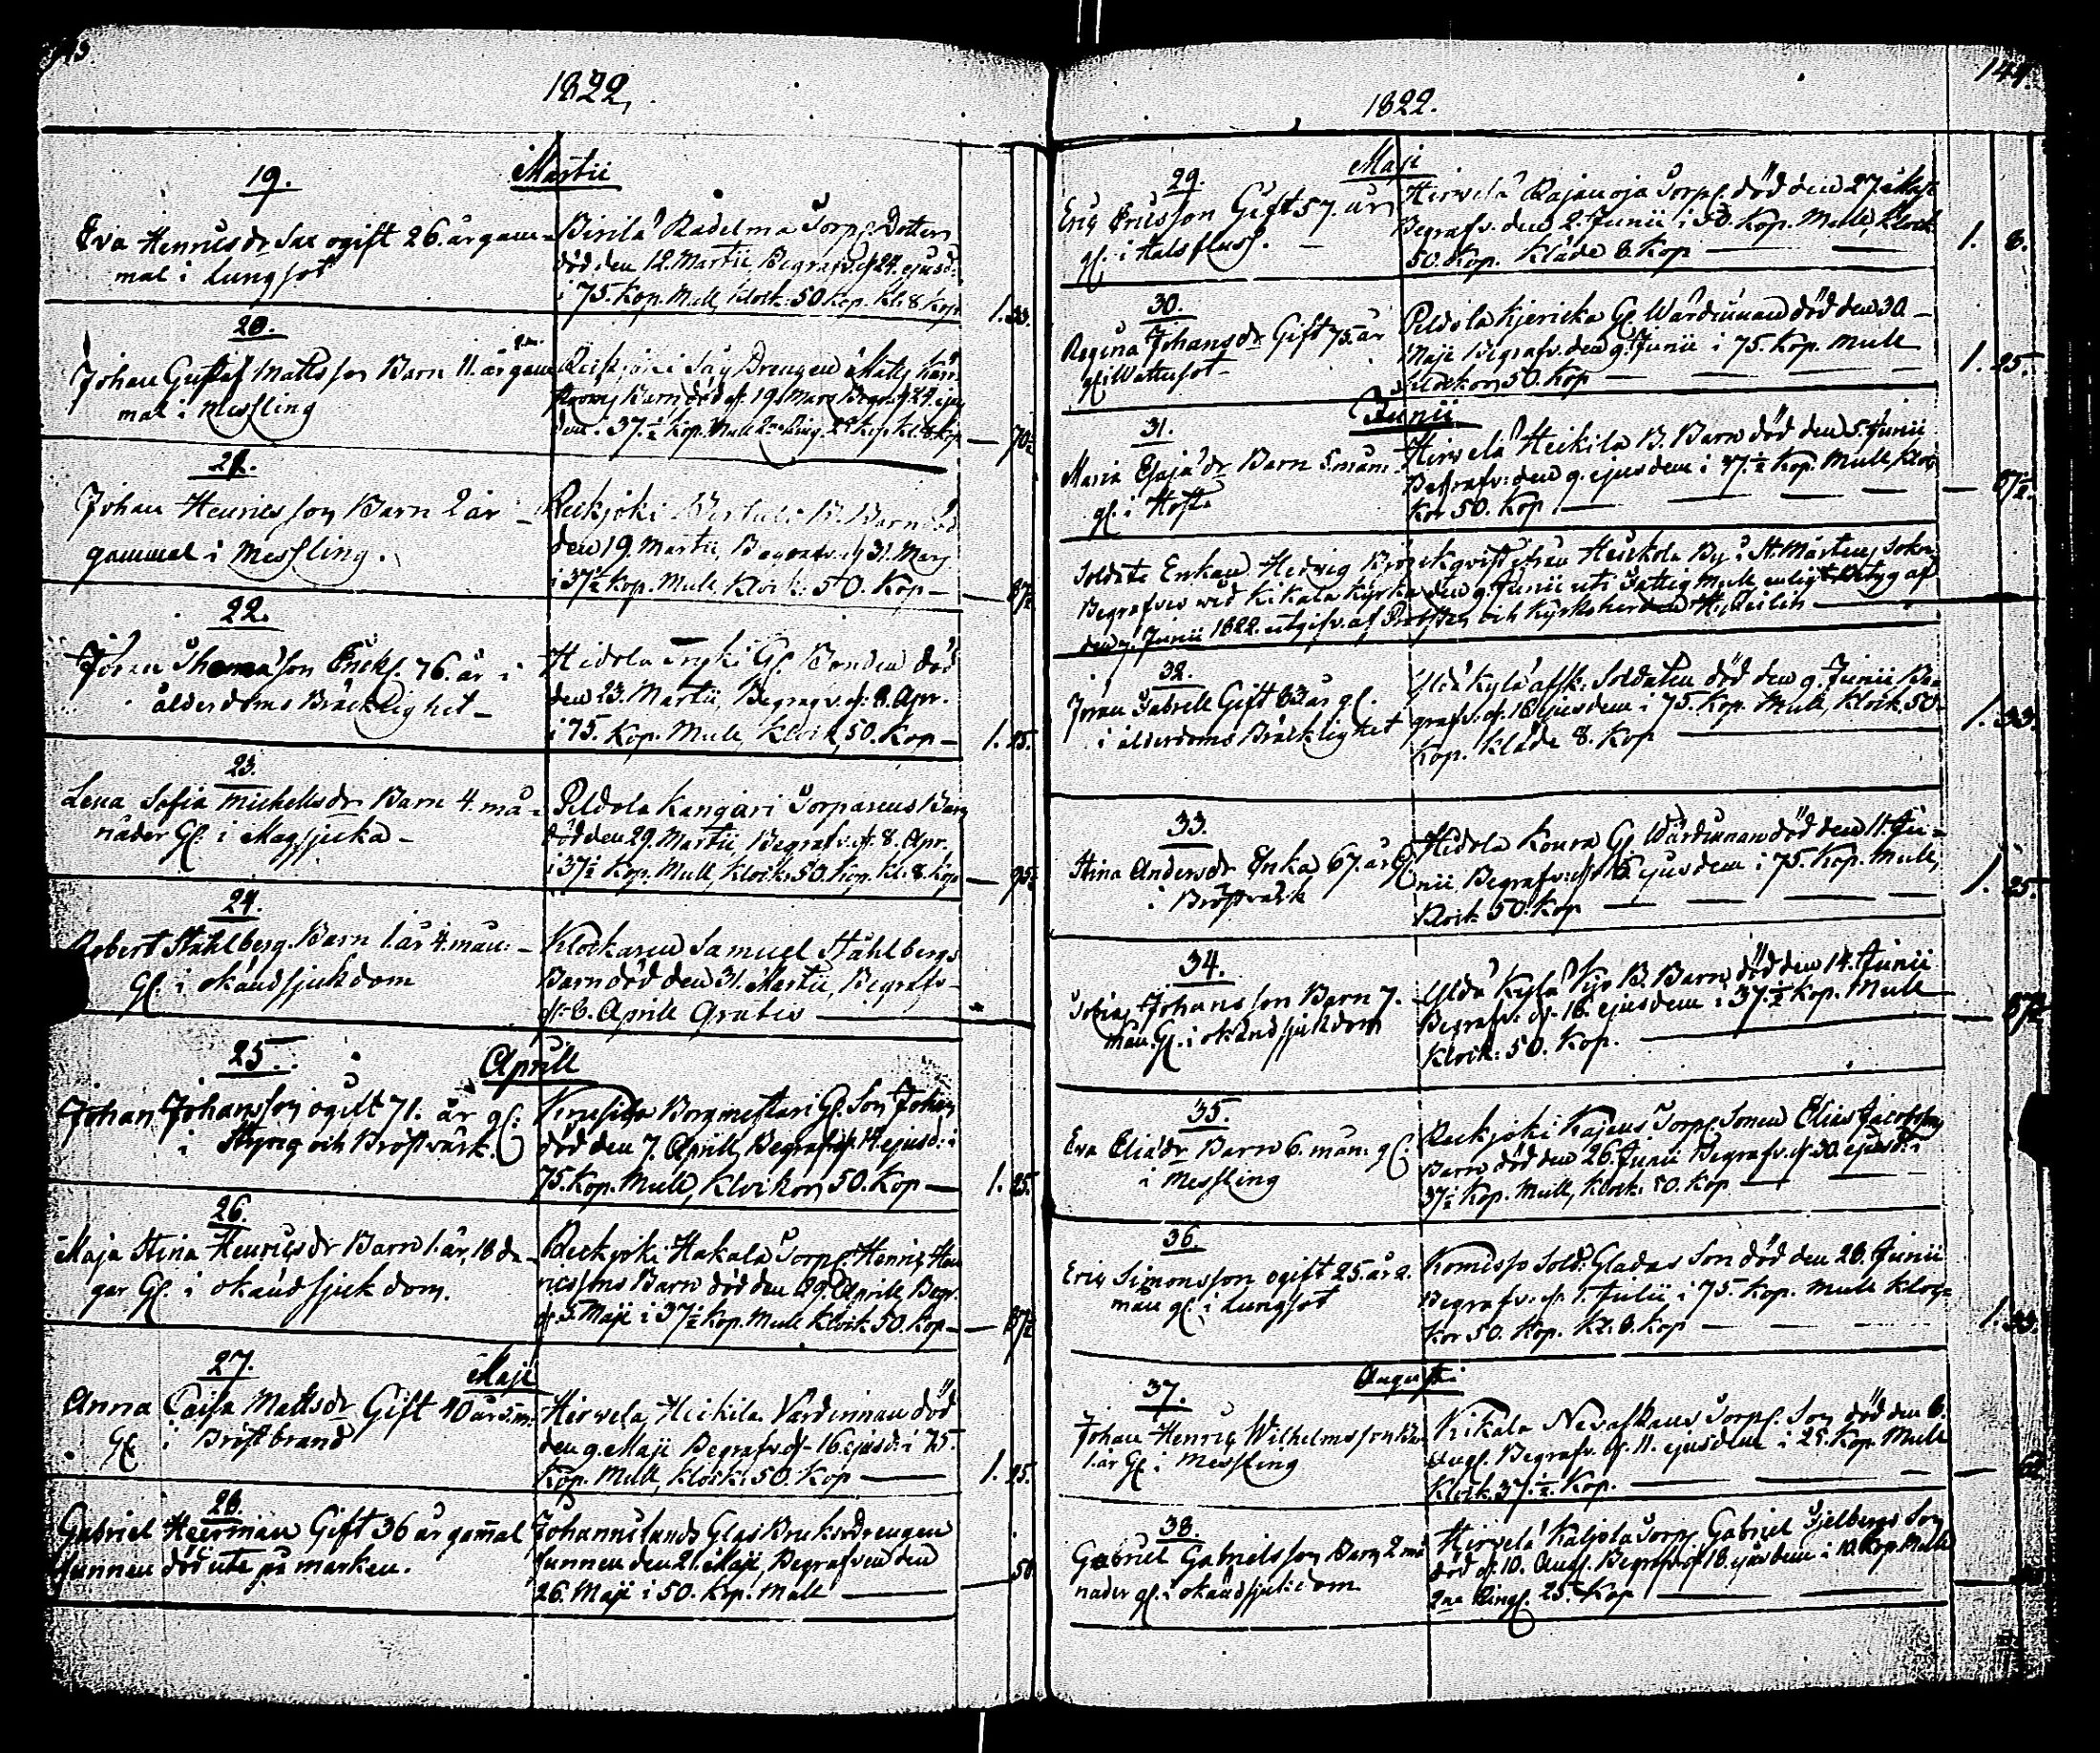 1822,
Martii
19.
Eva Henricsdr Sax ogift 26. år gam-
mal i Lungsot
Birila Radelma Torp. Dotter
död den 12. Martii, Begrafv. d 24. ejusd:
i 75. Kop. Mull, Klock: 50 Kop. Kl: 8 Kop
1. 33.
20.
Johan Gustaf Mattsson Barn 11. år gam
mal i Messling
Reckjoki Såg Drengen Matts
Barn död d. 19. Mars Begraf 24. ejus
dem i 37.½ Kop. Mull 2ne Ring. 25 Kop. Kl. 8 Kop
— 70½
21.
Johan Henricsson Barn 2 år
gammal i Messling.
Reckjoki B. Barn död
den 19. Martii, Begrafv. d 31. Mars
i 37½ Kop. Mull, Klock: 50. Kop —
— 87½
22.
Jöran Thomasson Enckl. 76. år i
ålderdoms Bräcklighet —
Hidola Gl. Bonden död
den 23. Martii, Begrafv. d: 8. Apr.
i 75. Kop. Mull, Klock, 50. Kop —
1. 25.
23.
Lena Sofia Michelsdr Barn 4. må-
nader Gl. i Magsjuka —
Peldola Kangari Torparens Barn
död den 29. Martii, Begrafv. d. 8. Apr.
i 37½ Kop. Mull, Klock: 50. Kop. Kl: 8 Kop
— 95½
24.
Robert Ståhlberg. Barn 1. år 4. mån: —
Gl. i okänd sjukdom
Klockaren Samuel Ståhlbergs
Barn död den 31. Martii, Begrafv —
d: 8. Aprill Gratis —
25.
Aprill
Johan Johansson ogift 71. år gl:
i Styng och Bröstvärk.
Borgmestari Gl. Son Johan
död den 7. Aprill, Begraf. d. 14. ejusd: i
75. Kop. Mull, Klockorn 50. Kop —
1. 25.
26.
Maja Stina Henricsdr Barn 1. år, 18 da-
gar Gl. i okänd sjukdom.
Reckjoki Hakala Torp: Henric Hen
ricssons Barn död den 29. Aprill Begr.
d: 5. Maji i 37½ Kop. Mull Klock 50. Kop —
— 87½
27.
Maji
Anna Caisa Mattsdr Gift 40 år 5. m.
Gl i Bröstbrand
Hirvela, Heikila Värdinnan död
den 9. Maji Begrafv. d. 16. ejusd: i 75.
Kop. Mull, Klock: 50. Kop —
1. 25.
28.
Gabriel Heerman Gift 36 år gam̄al
funnen död ute på marken.
Johannislunds Glas Bruksdrengen
funnen den 21. Maji, Begrafven den
26. Maji i 50. Kop. Mull —
— 50
144.
1822.
Maji
29.
Eric Ericsson Gift 57. år
gl. i Halsfluss. —
Hirvelä Rajanoja Torp. död den 27. Maji
Begrafv. den 2. Junii i 50. Kop. Mull, Klock
50. Kop. Kläde 8. Kop —
1. 8.
30.
Regina Johansdr Gift 75. år
gl i Wattusot —
Peldola Kjericka Gl. Wärdinnan död den 30. —
Maji Begrafv. den 9. Junii i 75. Kop. Mull
Klockorn 50. Kop —
1. 25.
Junii
31.
Maria Esaiædr Barn 5. mån:
gl. i Hosta
Hirvelä Heikilä B. Barn död den 5. Junii
Begrafv: den 9. ejusdem i 37.½ Kop. Mull, Kloc
kor 50. Kop —
— 87½
Soldats Enkan Hedvig från Heickola By i St. Mårtens Sokn
Begrafves wid Kikala Kyrka den 9. Junii uti Mull enligt Betyg af
den 7. Junii 1822. utgifv. af Probsten och Kyrkoherden —
32.
Jöran Gabrell Gift 63 år gl.
i ålderdoms Bräcklighet
Yldäkylä afsk. Soldaten död den 9. Junii Be-
grafv. d. 16 ejusdem i 75. Kop. Mull, Klock. 50.
Kop. Kläde 8. Kop —
1. 33.
33.
Stina Andersdr Enka 67. år Gl.
i Bröstvärk
Hidola Konra Gl. Wärdinnan död den 11. Ju-
nii, Begrafv: d 16 ejusdem i 75. Kop. Mull,
Klock 50. Kop —
1. 25.
34.
Tobias Johansson Barn 7.
mån. Gl. i okänd sjukdom
Yldä Kylä B. Barn död den 14. Junii
Begrafv. d. 16. ejusdem i 37.½ Kop. Mull
Klock: 50. Kop. —
— 87½
35.
Eva Eliædr Barn 6. mån: gl:
i Messling
Reckjoki Kajens Torp. Sonen Elias Jacobssons
Barn död den 26. Junii Begrafv. d. 30. ejusd: i
37½ Kop. Mull, Klock. 50. Kop —
36.
Eric Simonsson ogift 25. år 2.
mån gl. i Lungsot
Komisso Sold: Gladas Son död den 26. Junii
Begrafv. d. 7. Julii i 75. Kop. Mull Kloc-
kor 50. Kop. Kl: 8. Kop —
1. 33.
Augusti
37.
Johan Henric Wilhelmsson Barn
1. år Gl. i Messling
Kikala Torp. Son död den 6.
Aug. Begrafv. d. 11. ejusdem i 25. Kop. Mull
Klock. 37.½. Kop. —
38.
Gabriel Gabrielsson Barn 2 må
nader gl. i okänd sjukdom
Hirvelä Kaljola Torp. Gabriel Sjelbergs Son
död d. 10. Aug. Begrafv. d 18. ejusdem i 10. Kop. Mull
2ne Ring. 25. Kop —